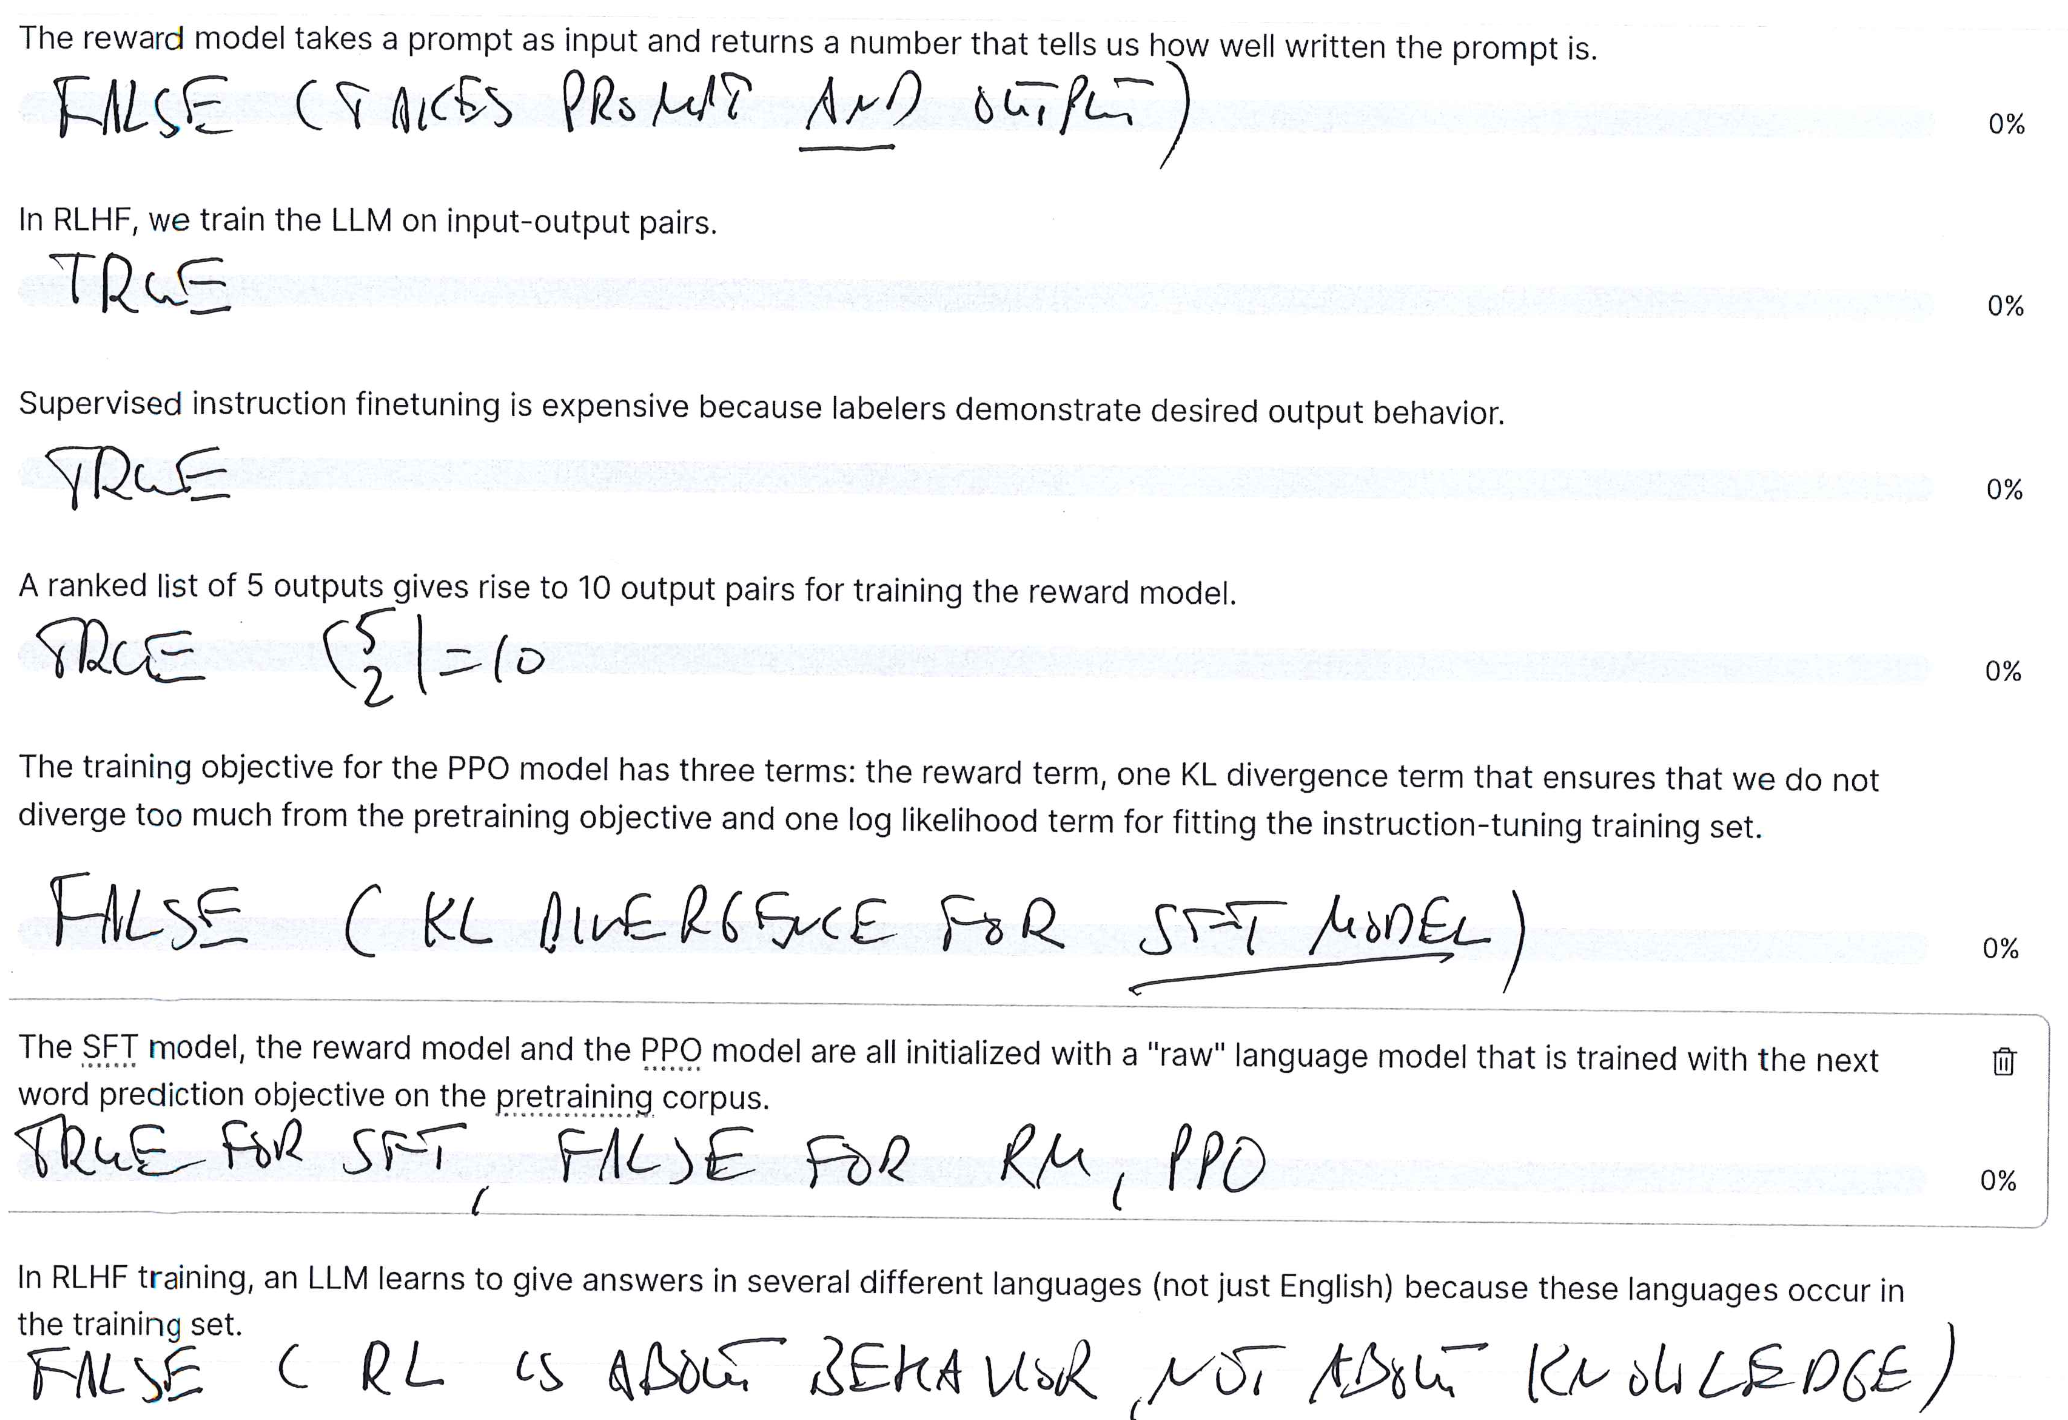 The reward model takes a prompt as input and returns a number that tells us how well written the prompt is.
FALSE (TAKES PROMPT AND OUTPUT)
0%
In RLHF, we train the LLM on input-output pairs.
TRUE
0%
Supervised instruction finetuning is expensive because labelers demonstrate desired output behavior.
TRUE
0%
A ranked list of 5 outputs gives rise to 10 output pairs for training the reward model.
TRUE (5 2) = 10
0%
The training objective for the PPO model has three terms: the reward term, one KL divergence term that ensures that we do not
diverge too much from the pretraining objective and one log likelihood term for fitting the instruction-tuning training set.
FALSE (KL DIVERGENCE FOR SFT MODEL)
0%
The SFT model, the reward model and the PPO model are all initialized with a "raw" language model that is trained with the next
word prediction objective on the pretraining corpus.
TRUE FOR SFT, FALSE FOR RM, PPO
0%
In RLHF training, an LLM learns to give answers in several different languages (not just English) because these languages occur in
the training set.
FALSE (RL IS ABOUT BEHAVIOR, NOT ABOUT KNOWLEDGE)